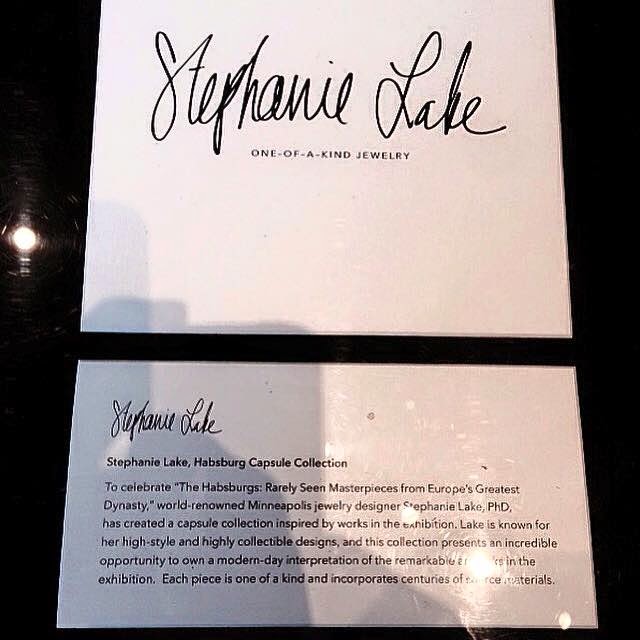 Stephanie Lake
ONE-OF-A-KIND JEWELRY
Stephanie Lake
Stephanie Lake, Habsburg Capsule Collection
To celebrate "The Habsburgs: Rarely Seen Masterpieces from Europe's Greatest
Dynasty," world-renowned Minneapolis jewelry designer Stephanie Lake, PhD,
has created a capsule collection inspired by works in the exhibition. Lake is known for
her high-style and highly collectible designs, and this collection presents an incredible
opportunity to own a modern-day interpretation of the remarkable artworks in the
exhibition. Each piece is one of a kind and incorporates centuries of source materials.